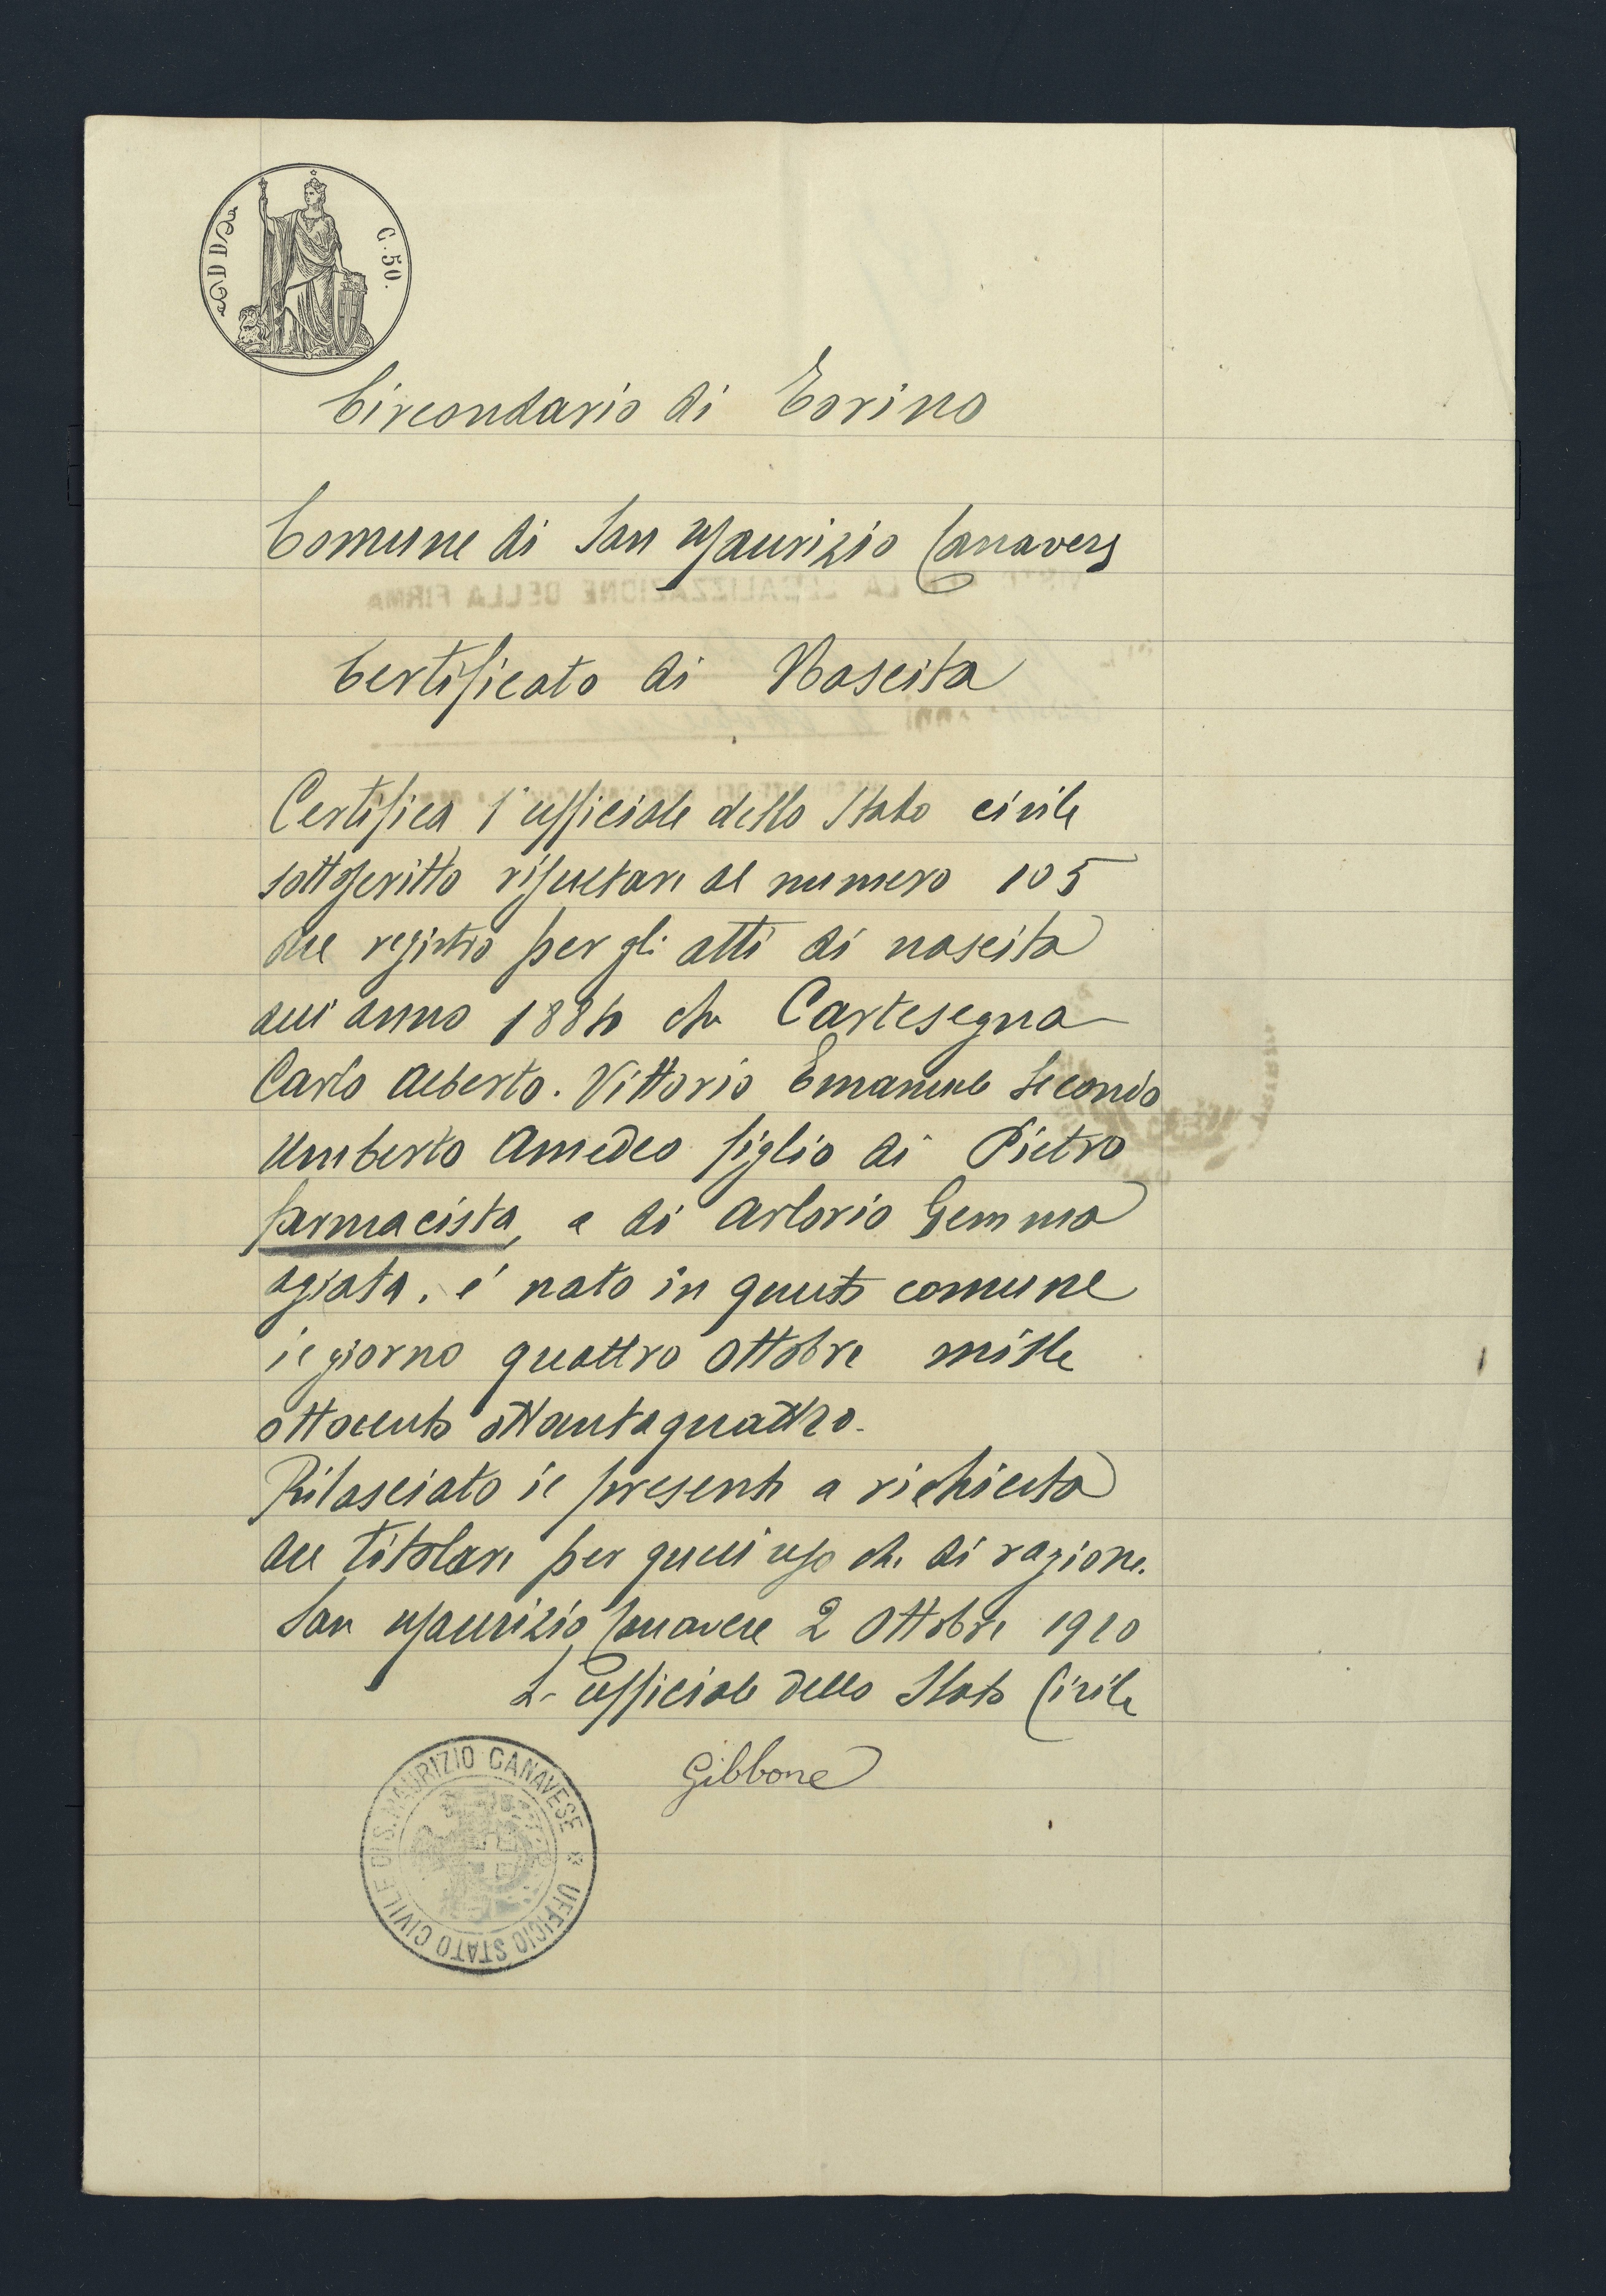 C. 50.
Circondario di Torino
Comune di San Maurizio Canavese
LEGALIZZAZIONE DELLA FIRMA
Certificato di Nascita
Certifica l'ufficiale dello Stato civile
sottoscritto risultare al numero 105
del registro per gli atti di nascita
dell'anno 1884 che Cartesegna
Carlo Alberto. Vittorio Emanuele Secondo
Umberto Amedeo figlio di Pietro
farmacista, e di Arlorio Gemma
agiata, é nato in questo comune
il giorno quattro Ottobre mille
ottocento ottantaquattro.
Rilasciato il presente a richiesta
del titolare per quell'uso che di ragione.
San Maurizio Canavese 2 Ottobre 1910
L'ufficiale dello Stato Civile
Gibbone
UFFICIO STATO CIVILE DI S. MAURIZIO CANAVESE